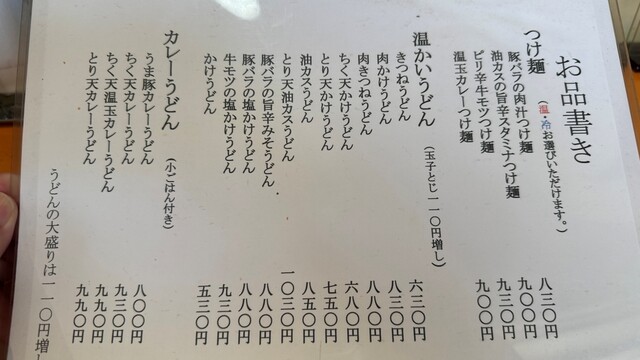 お品書き
つけ麺(温・冷お選びいただけます。)
豚バラの肉汁つけ麺 八三〇円
油カスの旨辛スタミナつけ麺 九〇〇円
ピリ辛牛モツつけ麺 九三〇円
温玉カレーつけ麺 九〇〇円
温かいうどん(玉子とじ一一〇円増し)
きつねうどん 六三〇円
肉かけうどん 八三〇円
肉きつねうどん 八八〇円
ちく天かけうどん 六八〇円
とり天かけうどん 七五〇円
油カスうどん 八五〇円
とり天油カスうどん 一〇三〇円
豚バラの旨辛みそうどん 八八〇円
豚バラの塩かけうどん 八八〇円
牛モツの塩かけうどん 九三〇円
かけうどん 五三〇円
カレーうどん(小ごはん付き)
うま豚カレーうどん 八〇〇円
ちく天カレーうどん 九三〇円
ちく天温玉カレーうどん 九九〇円
とり天カレーうどん 九九〇円
うどんの大盛りは一一〇円増し